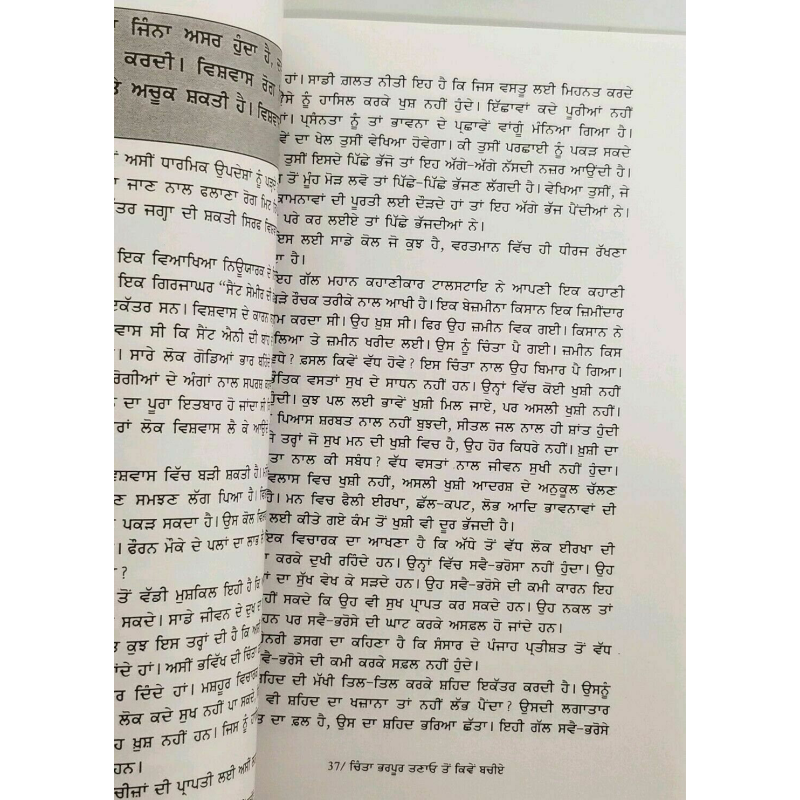 ਜਿੰਨਾ ਅਸਰ ਹੁੰਦਾ ਹੈ,
ਕਰਦੀ। ਵਿਸ਼ਵਾਸ ਰੋਗ
ਅਚੂਕ ਸ਼ਕਤੀ ਹੈ।
ਅਸੀਂ ਧਾਰਮਿਕ ਉਪਦੇਸ਼ਾਂ ਨੂੰ
ਜਾਣ ਨਾਲ ਫਲਾਣਾ ਰੋਗ ਮਿਟ
ਜਗ੍ਹਾ ਦੀ ਸ਼ਕਤੀ ਸਿਰਫ
ਇਕ ਵਿਆਖਿਆ ਨਿਊਯਾਰਕ ਦੇ
ਇਕ ਗਿਰਜਾਘਰ “ਸੈਂਟ ਸੇਮੀਰ ਦੀ
ਇਕੱਤਰ ਸਨ। ਵਿਸ਼ਵਾਸ ਦੇ ਕਾਰਨ
ਸੀ ਕਿ ਸੈਂਟ ਐਨੀ ਦੀ
ਸਾਰੇ ਲੋਕ ਗੋਡਿਆਂ ਭਾਰ
ਰੋਗੀਆਂ ਦੇ ਅੰਗਾਂ ਨਾਲ ਸਪਰਸ਼
ਦਾ ਪੂਰਾ ਇਤਬਾਰ ਹੋ ਜਾਂਦਾ
ਲੋਕ ਵਿਸ਼ਵਾਸ ਲੈ ਕੇ
ਵਿੱਚ ਬੜੀ ਸ਼ਕਤੀ ਹੈ।
ਸਮਝਣ ਲੱਗ ਪਿਆ ਹੈ।
ਪਕੜ ਸਕਦਾ ਹੈ। ਉਸ ਕੋਲ
ਫੌਰਨ ਮੌਕੇ ਦੇ ਪਲਾਂ ਦਾ ਲਾਭ
?
ਤੋਂ ਵੱਡੀ ਮੁਸ਼ਕਿਲ ਇਹੀ ਹੈ ਕਿ
ਸਕਦੇ। ਸਾਡੇ ਜੀਵਨ ਦੇ ਦੁਖ
ਕੁਝ ਇਸ ਤਰ੍ਹਾਂ ਦੀ ਹੈ ਕਿ
ਹਾਂ। ਅਸੀਂ ਭਵਿੱਖ ਦੀ ਚਿੰਤਾ
ਦਿੰਦੇ ਹਾਂ। ਮਸ਼ਹੂਰ ਵਿਚਾਰਕ
ਲੋਕ ਕਦੇ ਸੁਖ ਨਹੀਂ ਪਾ ਸਕਦੇ
ਖੁਸ਼ ਨਹੀਂ ਹਨ। ਜਿਸ ਨੂੰ
ਹਨ।
ਚੀਜ਼ਾਂ ਦੀ ਪ੍ਰਾਪਤੀ ਲਈ ਅਸੀਂ
ਹਾਂ। ਸਾਡੀ ਗ਼ਲਤ ਨੀਤੀ ਇਹ ਹੈ ਕਿ ਜਿਸ ਵਸਤੂ ਲਈ ਮਿਹਨਤ ਕਰਦੇ
ਨੂੰ ਹਾਸਿਲ ਕਰਕੇ ਖੁਸ਼ ਨਹੀਂ ਹੁੰਦੇ। ਇੱਛਾਵਾਂ ਕਦੇ ਪੂਰੀਆਂ ਨਹੀਂ
ਪ੍ਰਸੰਨਤਾ ਨੂੰ ਤਾਂ ਭਾਵਨਾ ਦੇ ਪ੍ਰਛਾਵੇਂ ਵਾਂਗੂੰ ਮੰਨਿਆ ਗਿਆ ਹੈ।
ਦਾ ਖੇਲ ਤੁਸੀਂ ਵੇਖਿਆ ਹੋਵੇਗਾ। ਕੀ ਤੁਸੀਂ ਪਰਛਾਈ ਨੂੰ ਪਕੜ ਸਕਦੇ
ਤੁਸੀਂ ਇਸਦੇ ਪਿੱਛੇ ਭੱਜੋ ਤਾਂ ਇਹ ਅੱਗੇ-ਅੱਗੇ ਨੱਸਦੀ ਨਜ਼ਰ ਆਉਂਦੀ ਹੈ।
ਤੋਂ ਮੂੰਹ ਮੋੜ ਲਵੋ ਤਾਂ ਪਿੱਛੇ-ਪਿੱਛੇ ਭੱਜਣ ਲੱਗਦੀ ਹੈ। ਵੇਖਿਆ ਤੁਸੀਂ, ਜੇ
ਕਾਮਨਾਵਾਂ ਦੀ ਪੂਰਤੀ ਲਈ ਦੌੜਦੇ ਹਾਂ ਤਾਂ ਇਹ ਅੱਗੇ ਭੱਜ ਪੈਂਦੀਆਂ ਨੇ।
ਪਰੇ ਕਰ ਲਈਏ ਤਾਂ ਪਿੱਛੇ ਭੱਜਦੀਆਂ ਨੇ।
ਇਸ ਲਈ ਸਾਡੇ ਕੋਲ ਜੋ ਕੁਝ ਹੈ, ਵਰਤਮਾਨ ਵਿੱਚ ਹੀ ਧੀਰਜ ਰੱਖਣਾ
ਹੈ।
ਇਹ ਗੱਲ ਮਹਾਨ ਕਹਾਣੀਕਾਰ ਟਾਲਸਟਾਇ ਨੇ ਆਪਣੀ ਇਕ ਕਹਾਣੀ
ਰੌਚਕ ਤਰੀਕੇ ਨਾਲ ਆਖੀ ਹੈ। ਇਕ ਬੇਜ਼ਮੀਨਾ ਕਿਸਾਨ ਇਕ ਜ਼ਿਮੀਂਦਾਰ
ਕਰਦਾ ਸੀ। ਉਹ ਖ਼ੁਸ਼ ਸੀ। ਫਿਰ ਉਹ ਜ਼ਮੀਨ ਵਿਕ ਗਈ। ਕਿਸਾਨ ਨੇ
ਲਿਆ ਤੇ ਜ਼ਮੀਨ ਖਰੀਦ ਲਈ। ਉਸ ਨੂੰ ਚਿੰਤਾ ਪੈ ਗਈ। ਜ਼ਮੀਨ ਕਿਸ
ਵਧੇ? ਫ਼ਸਲ ਕਿਵੇਂ ਵੱਧ ਹੋਵੇ? ਇਸ ਚਿੰਤਾ ਨਾਲ ਉਹ ਬਿਮਾਰ ਪੈ ਗਿਆ।
ਵਸਤਾਂ ਸੁਖ ਦੇ ਸਾਧਨ ਨਹੀਂ ਹਨ। ਉਨ੍ਹਾਂ ਵਿੱਚ ਕੋਈ ਖੁਸ਼ੀ ਨਹੀਂ
ਹੁੰਦੀ। ਕੁਝ ਪਲ ਲਈ ਭਾਵੇਂ ਖੁਸ਼ੀ ਮਿਲ ਜਾਏ, ਪਰ ਅਸਲੀ ਖੁਸ਼ੀ ਨਹੀਂ।
ਪਿਆਸ ਸ਼ਰਬਤ ਨਾਲ ਨਹੀਂ ਬੁਝਦੀ, ਸੀਤਲ ਜਲ ਨਾਲ ਹੀ ਸ਼ਾਂਤ ਹੁੰਦੀ
ਤਰ੍ਹਾਂ ਜੋ ਸੁਖ ਮਨ ਦੀ ਖੁਸ਼ੀ ਵਿਚ ਹੈ, ਉਹ ਹੋਰ ਕਿਧਰੇ ਨਹੀਂ। ਖ਼ੁਸ਼ੀ ਦਾ
ਨਾਲ ਕੀ ਸਬੰਧ? ਵੱਧ ਵਸਤਾਂ ਨਾਲ ਜੀਵਨ ਸੁਖੀ ਨਹੀਂ ਹੁੰਦਾ।
ਵਿਚ ਖੁਸ਼ੀ ਨਹੀਂ, ਅਸਲੀ ਖੁਸ਼ੀ ਆਦਰਸ਼ ਦੇ ਅਨੁਕੂਲ ਚੱਲਣ
ਮਨ ਵਿਚ ਫੈਲੀ ਈਰਖਾ, ਛੱਲ-ਕਪਟ, ਲੋਭ ਆਦਿ ਭਾਵਨਾਵਾਂ ਦੀ
ਲਈ ਕੀਤੇ ਗਏ ਕੰਮ ਤੋਂ ਖੁਸ਼ੀ ਵੀ ਦੂਰ ਭੱਜਦੀ ਹੈ।
ਇਕ ਵਿਚਾਰਕ ਦਾ ਆਖਣਾ ਹੈ ਕਿ ਅੱਧੇ ਤੋਂ ਵੱਧ ਲੋਕ ਈਰਖਾ ਦੀ
ਕਰਕੇ ਦੁਖੀ ਰਹਿੰਦੇ ਹਨ। ਉਨ੍ਹਾਂ ਵਿੱਚ ਸਵੈ-ਭਰੋਸਾ ਨਹੀਂ ਹੁੰਦਾ। ਉਹ
ਦਾ ਸੁੱਖ ਵੇਖ ਕੇ ਸੜਦੇ ਹਨ। ਉਹ ਸਵੈ-ਭਰੋਸੇ ਦੀ ਕਮੀ ਕਾਰਨ ਇਹ
ਸਕਦੇ ਕਿ ਉਹ ਵੀ ਸੁਖ ਪ੍ਰਾਪਤ ਕਰ ਸਕਦੇ ਹਨ। ਉਹ ਨਕਲ ਤਾਂ
ਹਨ ਪਰ ਸਵੈ-ਭਰੋਸੇ ਦੀ ਘਾਟ ਕਰਕੇ ਅਸਫ਼ਲ ਹੋ ਜਾਂਦੇ ਹਨ।
ਡਸਗ ਦਾ ਕਹਿਣਾ ਹੈ ਕਿ ਸੰਸਾਰ ਦੇ ਪੰਜਾਹ ਪ੍ਰਤੀਸ਼ਤ ਤੋਂ ਵੱਧ
ਸਵੈ-ਭਰੋਸੇ ਦੀ ਕਮੀ ਕਰਕੇ ਸਫ਼ਲ ਨਹੀਂ ਹੁੰਦੇ।
ਸ਼ਹਿਦ ਦੀ ਮੱਖੀ ਤਿਲ-ਤਿਲ ਕਰਕੇ ਸ਼ਹਿਦ ਇਕੱਤਰ ਕਰਦੀ ਹੈ। ਉਸਨੂੰ
ਵੀ ਸ਼ਹਿਦ ਦਾ ਖਜ਼ਾਨਾ ਤਾਂ ਨਹੀਂ ਲੱਭ ਪੈਂਦਾ? ਉਸਦੀ ਲਗਾਤਾਰ
ਦਾ ਫ਼ਲ ਹੈ, ਉਸ ਦਾ ਸ਼ਹਿਦ ਭਰਿਆ ਛੱਤਾ। ਇਹੀ ਗੱਲ ਸਵੈ-ਭਰੋਸੇ
37/ ਚਿੰਤਾ ਭਰਪੂਰ ਤਣਾਓ ਤੋਂ ਕਿਵੇਂ ਬਚੀਏ